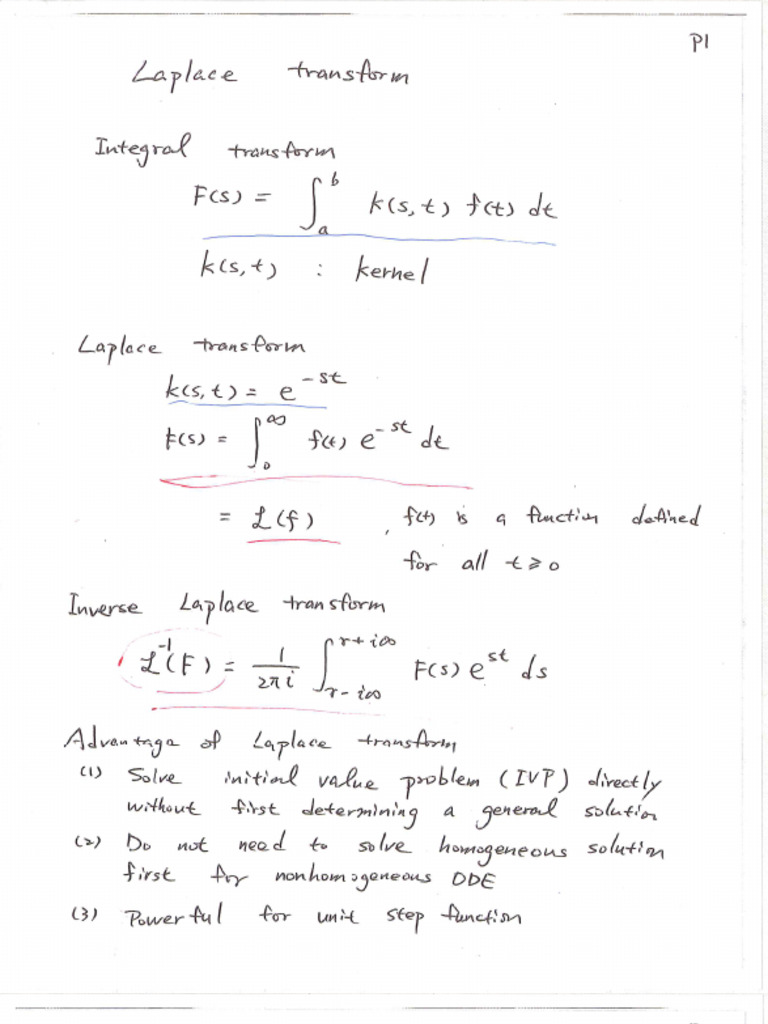 P1
Laplace transform
Integral transform
F(s) = ∫_a^b k(s,t) f(t) dt
k(s,t) : kernel
Laplace transform
k(s,t) = e^{-st}
F(s) = ∫_0^∞ f(t) e^{-st} dt
= ℒ(f) , f(t) is a function defined
for all t ≥ 0
Inverse Laplace transform
ℒ^{-1}(F) = 1/(2πi) ∫_{r-i∞}^{r+i∞} F(s) e^{st} ds
Advantage of Laplace transform
(1) Solve initial value problem (IVP) directly
without first determining a general solution
(2) Do not need to solve homogeneous solution
first for nonhomogeneous ODE
(3) Powerful for unit step function